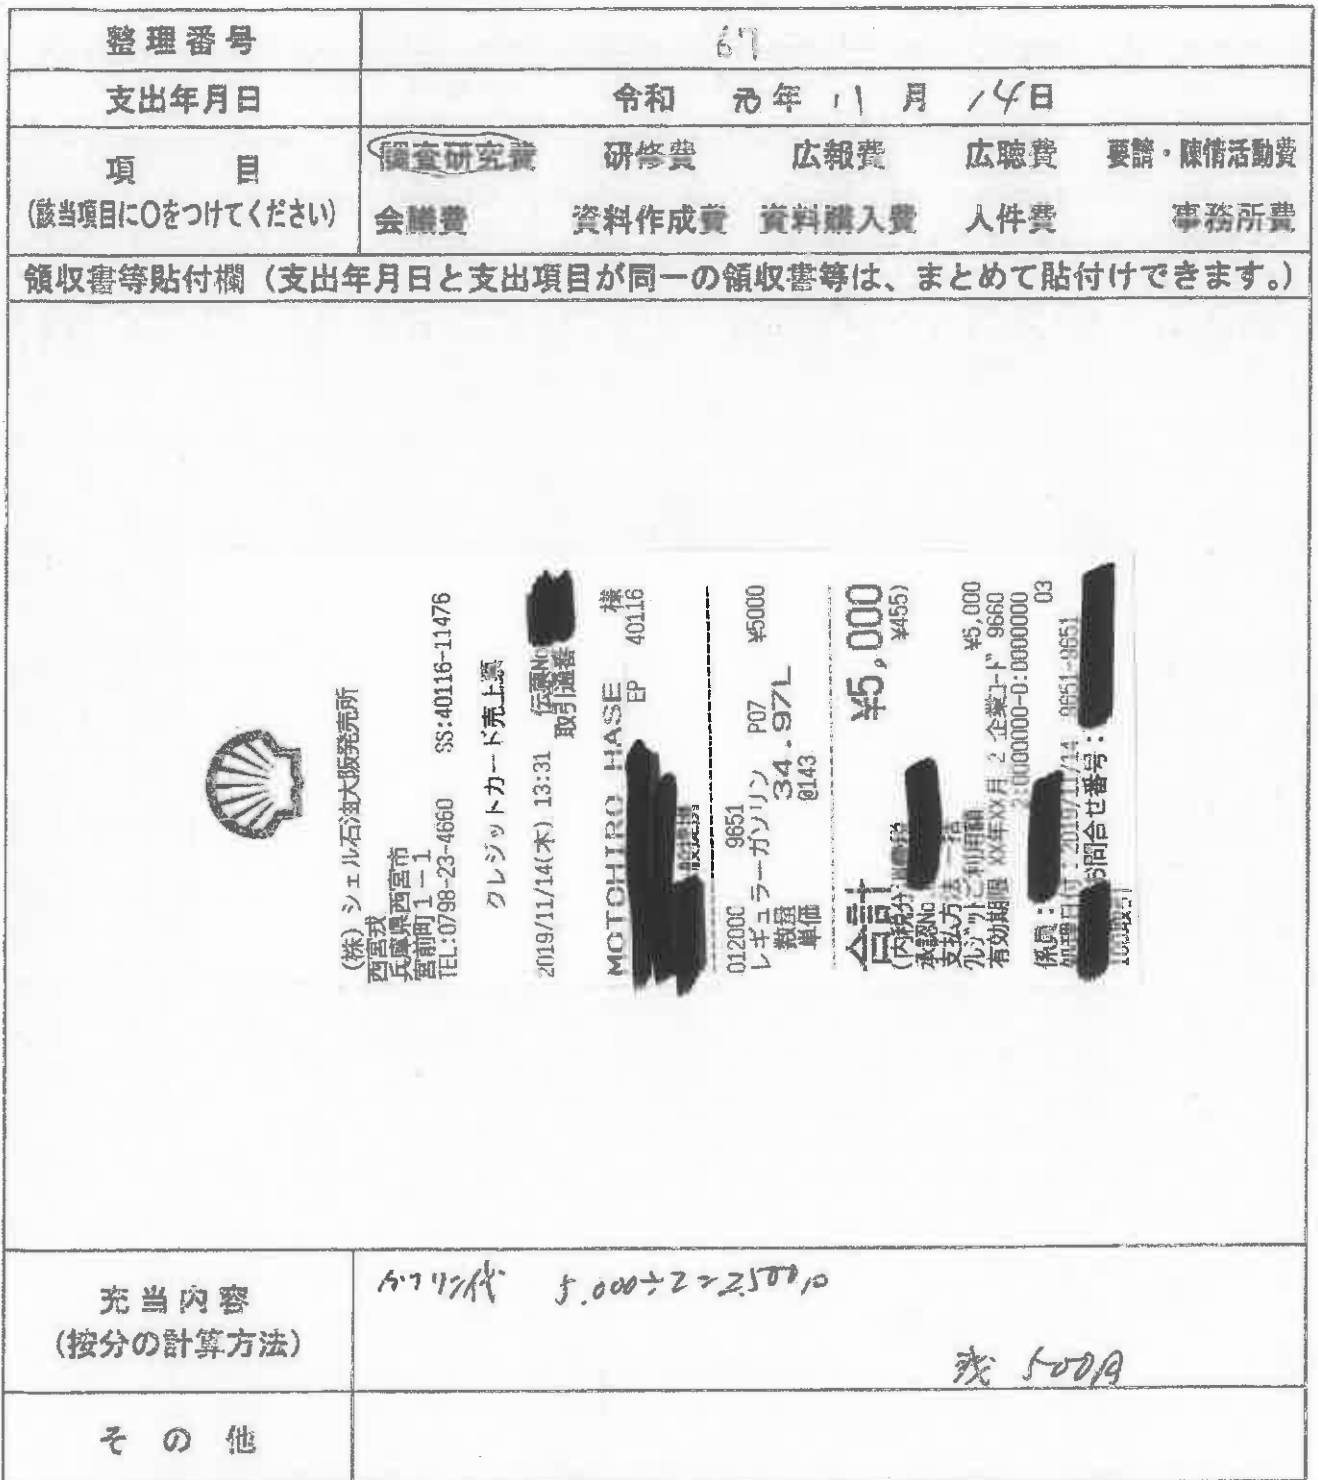 整理番号 67
支出年月日 令和 元年 11 月 14日
項 目
(該当項目に○をつけてください)
調査研究費 研修費 広報費 広聴費 要請・陳情活動費
会議費 資料作成費 資料購入費 人件費 事務所費
領収書等貼付欄(支出年月日と支出項目が同一の領収書等は、まとめて貼付けできます。)
(株)シェル石油大阪発売所
西宮戎
兵庫県西宮市
宮前町1-1
TEL:0798-23-4660 SS:40116-11476
クレジットカード売上票
2019/11/14(木) 13:31 伝票No
取引通番
MOTOHIRO HASE 様
EP 40116
012000 9651
レギュラーガソリン P07 ¥5000
数量 34.97L
単価 @143
合計 ¥5,000
(内税分 ¥455)
承認No
支払方法 一括
クレジットご利用額 ¥5,000
有効期限 XX年XX月 2 企業コード 9660
2:0000000-0:0000000
係員: 03
処理日付:2019/11/14 9651-9651
問合せ番号:
充当内容
(按分の計算方法)
ガソリン代 5.000÷2=2500円
残 500円
その他